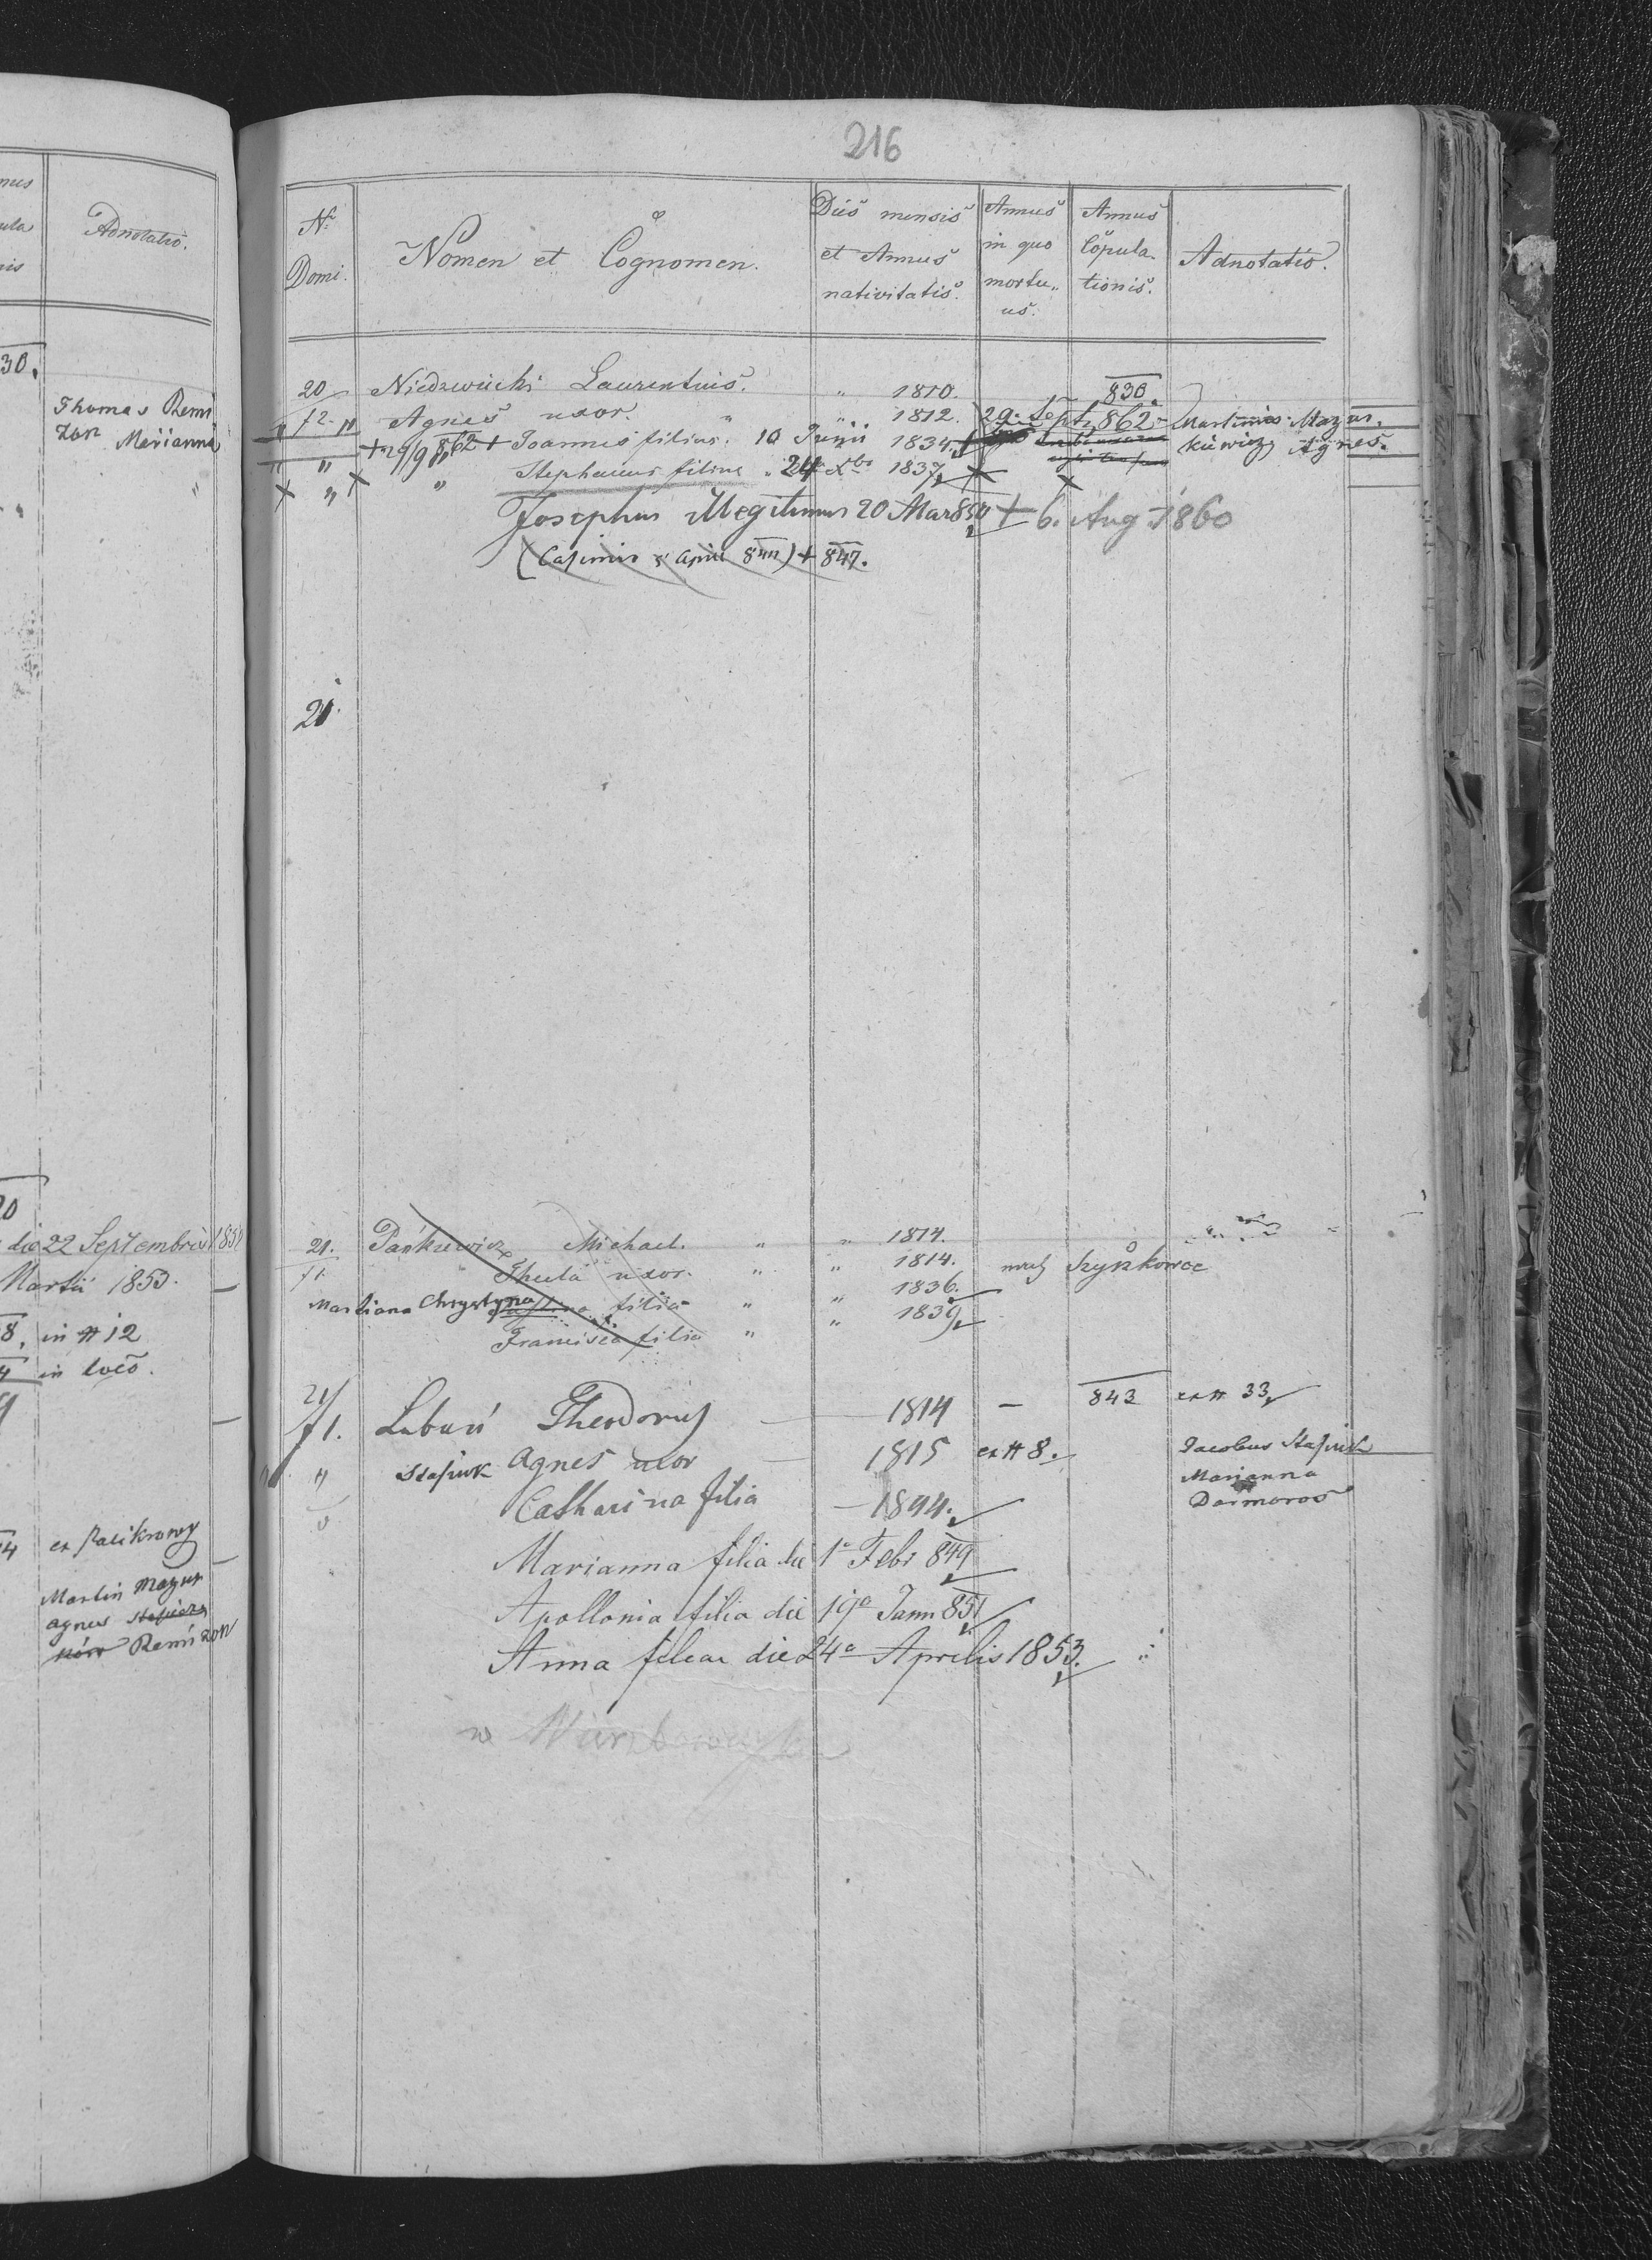 nus
Adnotatio.
30.
Thomas Remi
zon Marianna
20
die 22 Septembris 1851
Martii 1853.
8. in # 12
4 in loco.
4 ex Palikrowy
Martin Mazur
agnes
Remizon
216
Nr Domi.
Nomen et Cognomen.
Dies mensis et Annus nativitatis.
Annus in quo mortuus.
Annus Copulationis.
Adnotatio.
20 Niedzwiecki Laurentius. " 1810. 830.
/12. " Agnes uxor. " " 1812. 29. Sept. 862. Martinus Mazur.
" " + 29/9 862 + Joannes filius. 10 Junii 1834 kiewicz Agnes.
" " Stephanus filius " 24 Xbr 1837
Josephus Illegitimus 20 Mar 850 + 6. Aug 1860
(Casimir April 844) + 847.
21.
21. Pańkiewicz Michael. " " 1814.
/1. Thecla uxor. " " 1814.
Marianna Chrystyna filia " " 1836.
Francisca filia " " 1839
21/
/1. Labuń Theodorus 1814 — 843 ex # 33
" Stasiuk Agnes uxor 1815 ex # 8. Jacobus Stasiuk
Marianna
Catharina filia — 1844.
Marianna filia die 1a Febr 849
Apollonia filia die 19a Jann 851
Anna filia die 24a Aprilis 1853.
w